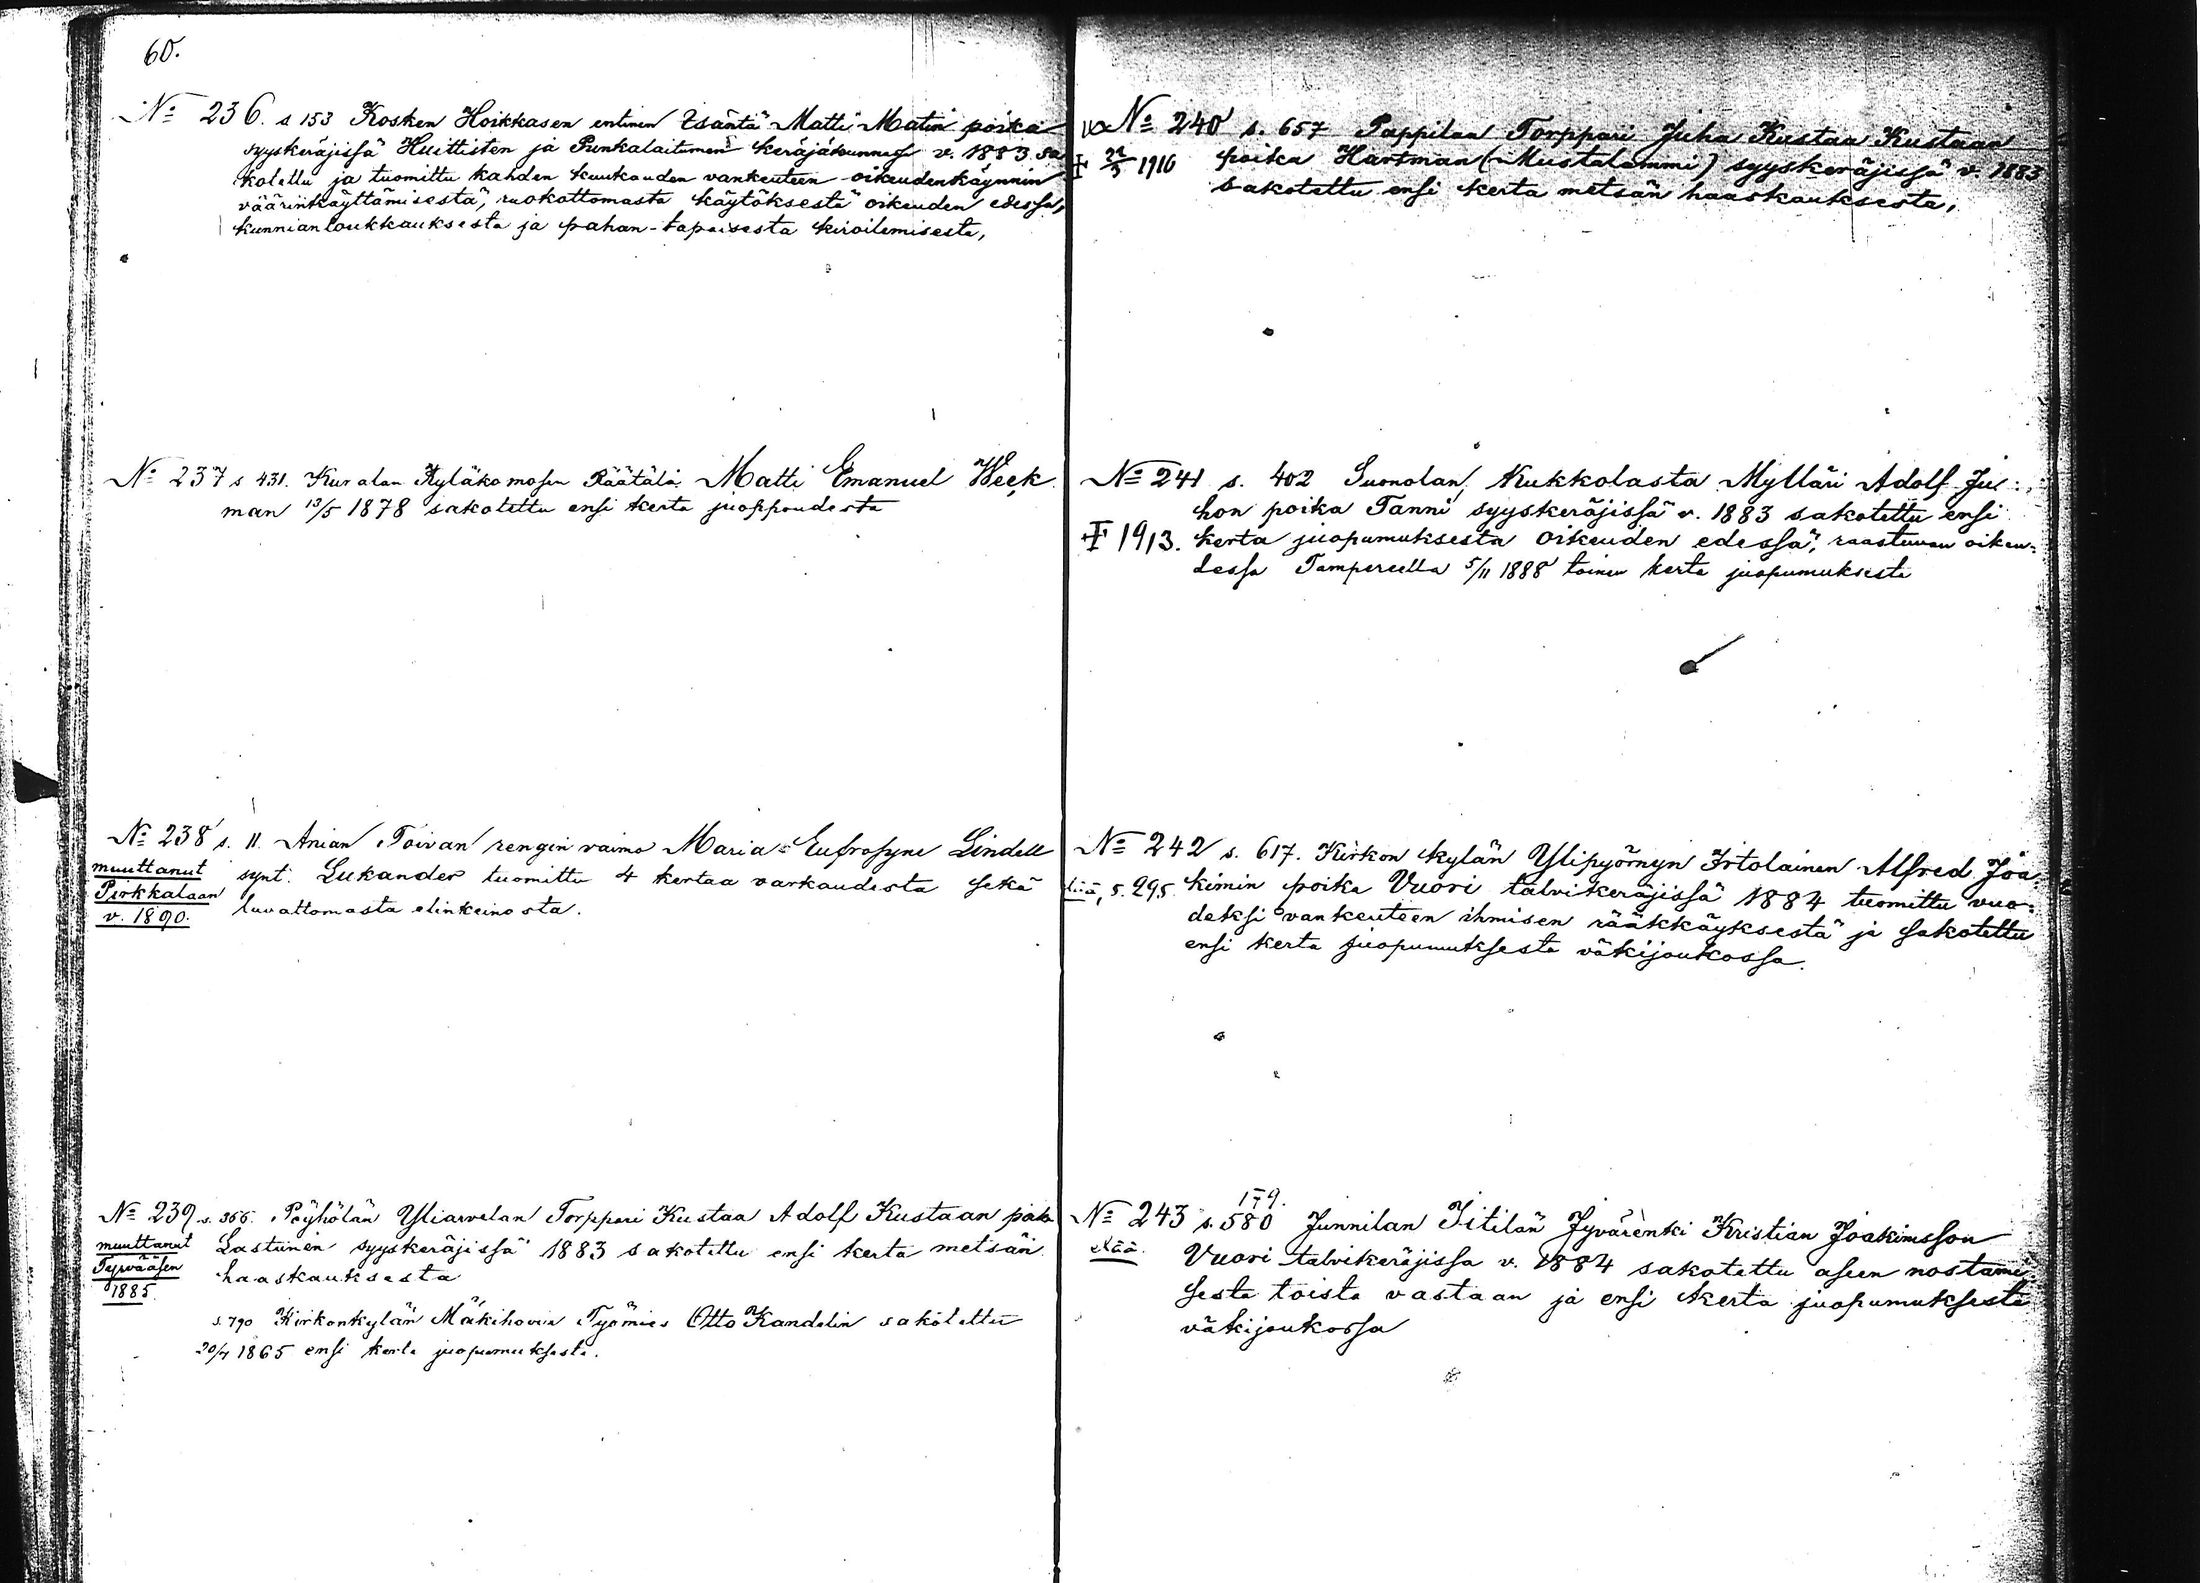 60.
№ 236. s 153 Kosken Hoikkasen entinen Isäntä Matti Matin poika
syyskeräjissä Huittisten ja Punkalaitumen keräjäkunnassa v. 1883 sa
kotettu ja tuomittu kahden kuukauden vankeuteen oikeudenkäynnin
väärinkäyttämisestä, ruokottomasta käytöksestä oikeuden edessä,
kunnianloukkauksesta ja pahan-tapaisesta kiroilemisesta,
№ 237 s 431. Kuralan Kyläkomosen Räätäli Matti Emanuel Weck
man 13/5 1878 sakotettu ensi kerta juoppoudesta
№ 238 s. 11. Anian Toivan rengin vaimo Maria Eufrosyne Lindell
muuttanut
Pirkkalaan
v. 1890.
synt. Lukander tuomittu 4 kertaa varkaudesta sekä
luvattomasta elinkeinosta.
№ 239 s. 366. Pöyhölän Yliarvelan Torppari Kustaa Adolf Kustaan poika
muuttanut
Tyrvääsen
1885
Lastunen syyskeräjissä 1883 sakotettu ensi kerta metsän
haaskauksesta
s. 790 Kirkonkylän Mäkihovin Työmies Otto Kandelin sakotettu
20/4 1865 ensi kerta juopumuksesta.
№ 240 s. 657 Pappilan Torppari Juha Kustaa Kustaan
1910 poika Hartman (Mustalammi) syyskeräjissä v. 1883
sakotettu ensi kerta metsän haaskauksesta,
№ 241 s. 402 Suonolan Kukkolasta Mylläri Adolf Ju:
hon poika Tanni syyskeräjissä v. 1883 sakotettu ensi
1913. kerta juopumuksesta oikeuden edessä, raastuvan oikeu:
dessa Tampereella 5/11 1888 toinen kerta juopumuksesta
№ 242 s. 617. Kirkon kylän Ylipyörnyn Irtolainen Alfred Joa:
s. 295. kimin poika Vuori talvikeräjissä 1884 tuomittu vuo:
deksi vankeuteen ihmisen rääkkäyksestä ja sakotettu
ensi kerta juopumuksesta väkijoukossa.
179.
№ 243 s. 580 Junnilan Iitilän Jyvärenki Kristian Joakimsson
elää. Vuori talvikeräjissä v. 1884 sakotettu aseen nostami:
sesta toista vastaan ja ensi kerta juopumuksesta
väkijoukossa